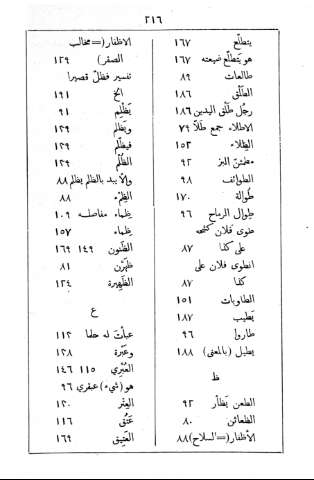 ٢١٦
يتطلّع ١٦٧
هو يتطلّع ضيعته ١٦٧
طالعات ٨٩
الطَّلْق ١٨٦
رجُل طَلْق اليدين ١٨٦
الاطلاء جمع طَلًا ٧٩
الطِلاء ١٥٣
مطمئنّ ٩٢
الطوائف ٩٨
طُوالة ١٧٠
طِوال الرماح ٩٦
طوى فلان كشحه
على كذا ٨٧
انطوى فلان على
كذا ٨٧
الطاويات ١٥١
يَطيب ١٨٧
طاروا ٩٦
يطيل (بالمعنى) ١٨٨
ظ
الظعن يَظأر ٩٢
الظعائن ٨٠
الأظفار (=السلاح) ٨٨
الاظفار (=مخالب
الصقر) ١٢٩
تفسير فظلّ قصيرا
الخ ١٩١
يَظْلِم ٩١
ويظلم ١٢٩
فيظّلم ١٢٩
الظُلْم ١٢٩
والّا يبد بالظلم يظلم ٨٨
الظِمْء ٨٨
ظِماء مفاصله ١٠٩
ظِماء ١٥٧
الظَنون ١٤٩ ١٦٩
ظَهَرْن ٨١
الظَهيرة ١٢٤
ع
عبأتُ له حلما ١١٢
وعَبْرة ١٢٨
العُبْري ١١٥ ١٤٦
هو (شيء) عبقري ٩٦
العِتْر ١٢٠
عَتُق ١١٦
العَتيق ١٦٩